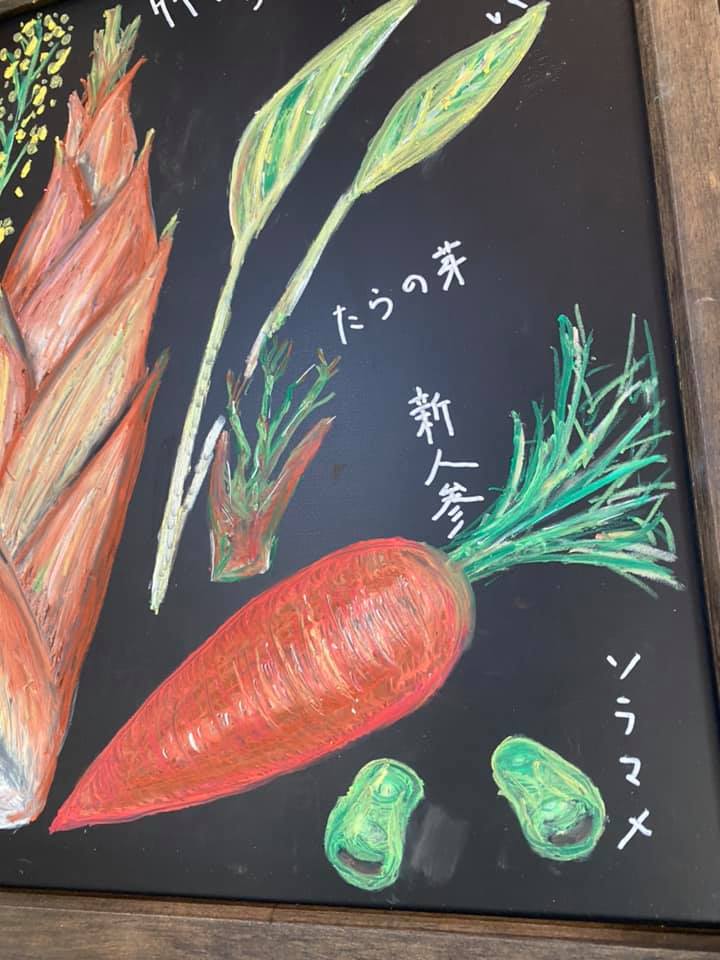 たらの芽
新人参
ソラマメ